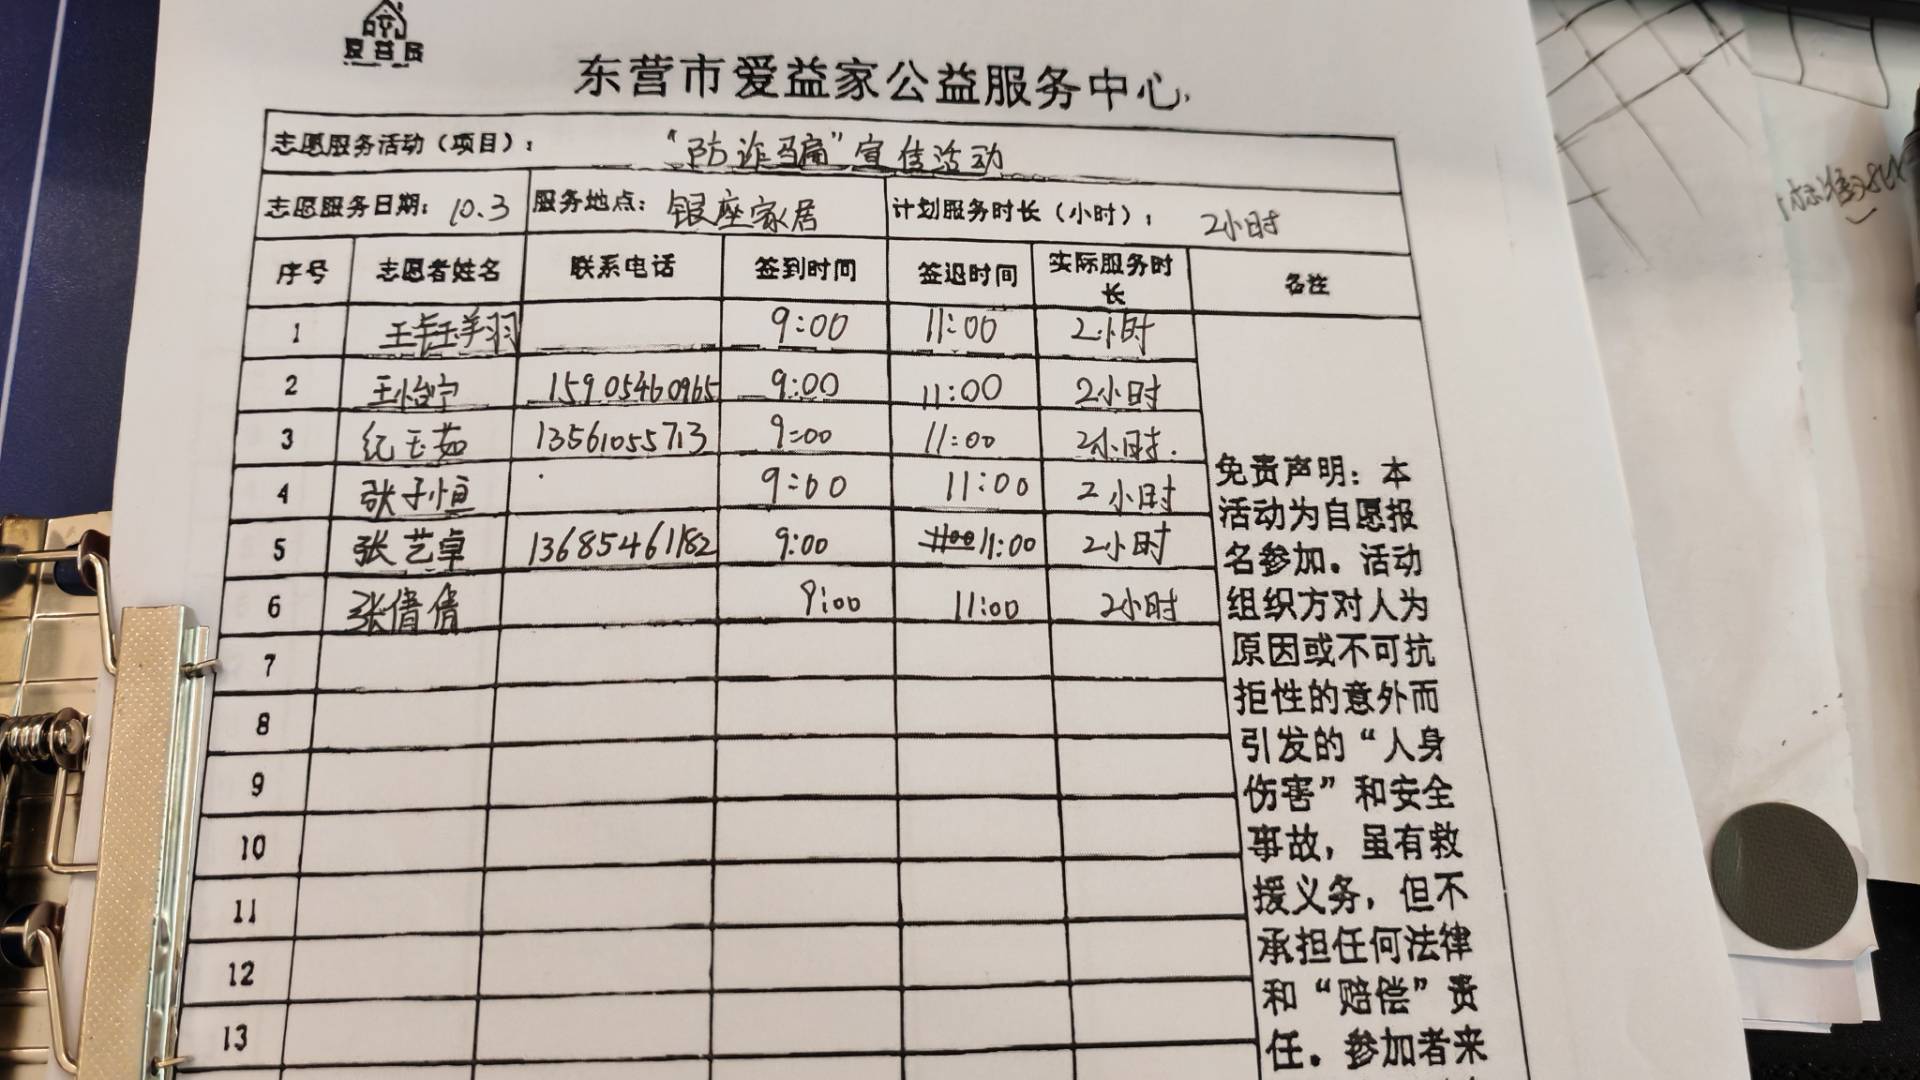 爱益家
东营市爱益家公益服务中心
志愿服务活动（项目）： “防诈骗”宣传活动
志愿服务日期： 10.3 服务地点： 银座家居 计划服务时长（小时）： 2小时
序号 志愿者姓名 联系电话 签到时间 签退时间 实际服务时长 备注
1 9:00 11:00 2小时
2 王怡宁 15905460965 9:00 11:00 2小时
3 纪玉茹 13561055713 9:00 11:00 2小时.
4 张子恒 9:00 11:00 2小时
5 张艺卓 13685461182 9:00 11:00 11:00 2小时
6 张倩倩 9:00 11:00 2小时
7
8
9
10
11
12
13
免责声明：本
活动为自愿报
名参加。活动
组织方对人为
原因或不可抗
拒性的意外而
引发的“人身
伤害”和安全
事故，虽有救
援义务，但不
承担任何法律
和“赔偿”责
任。参加者来